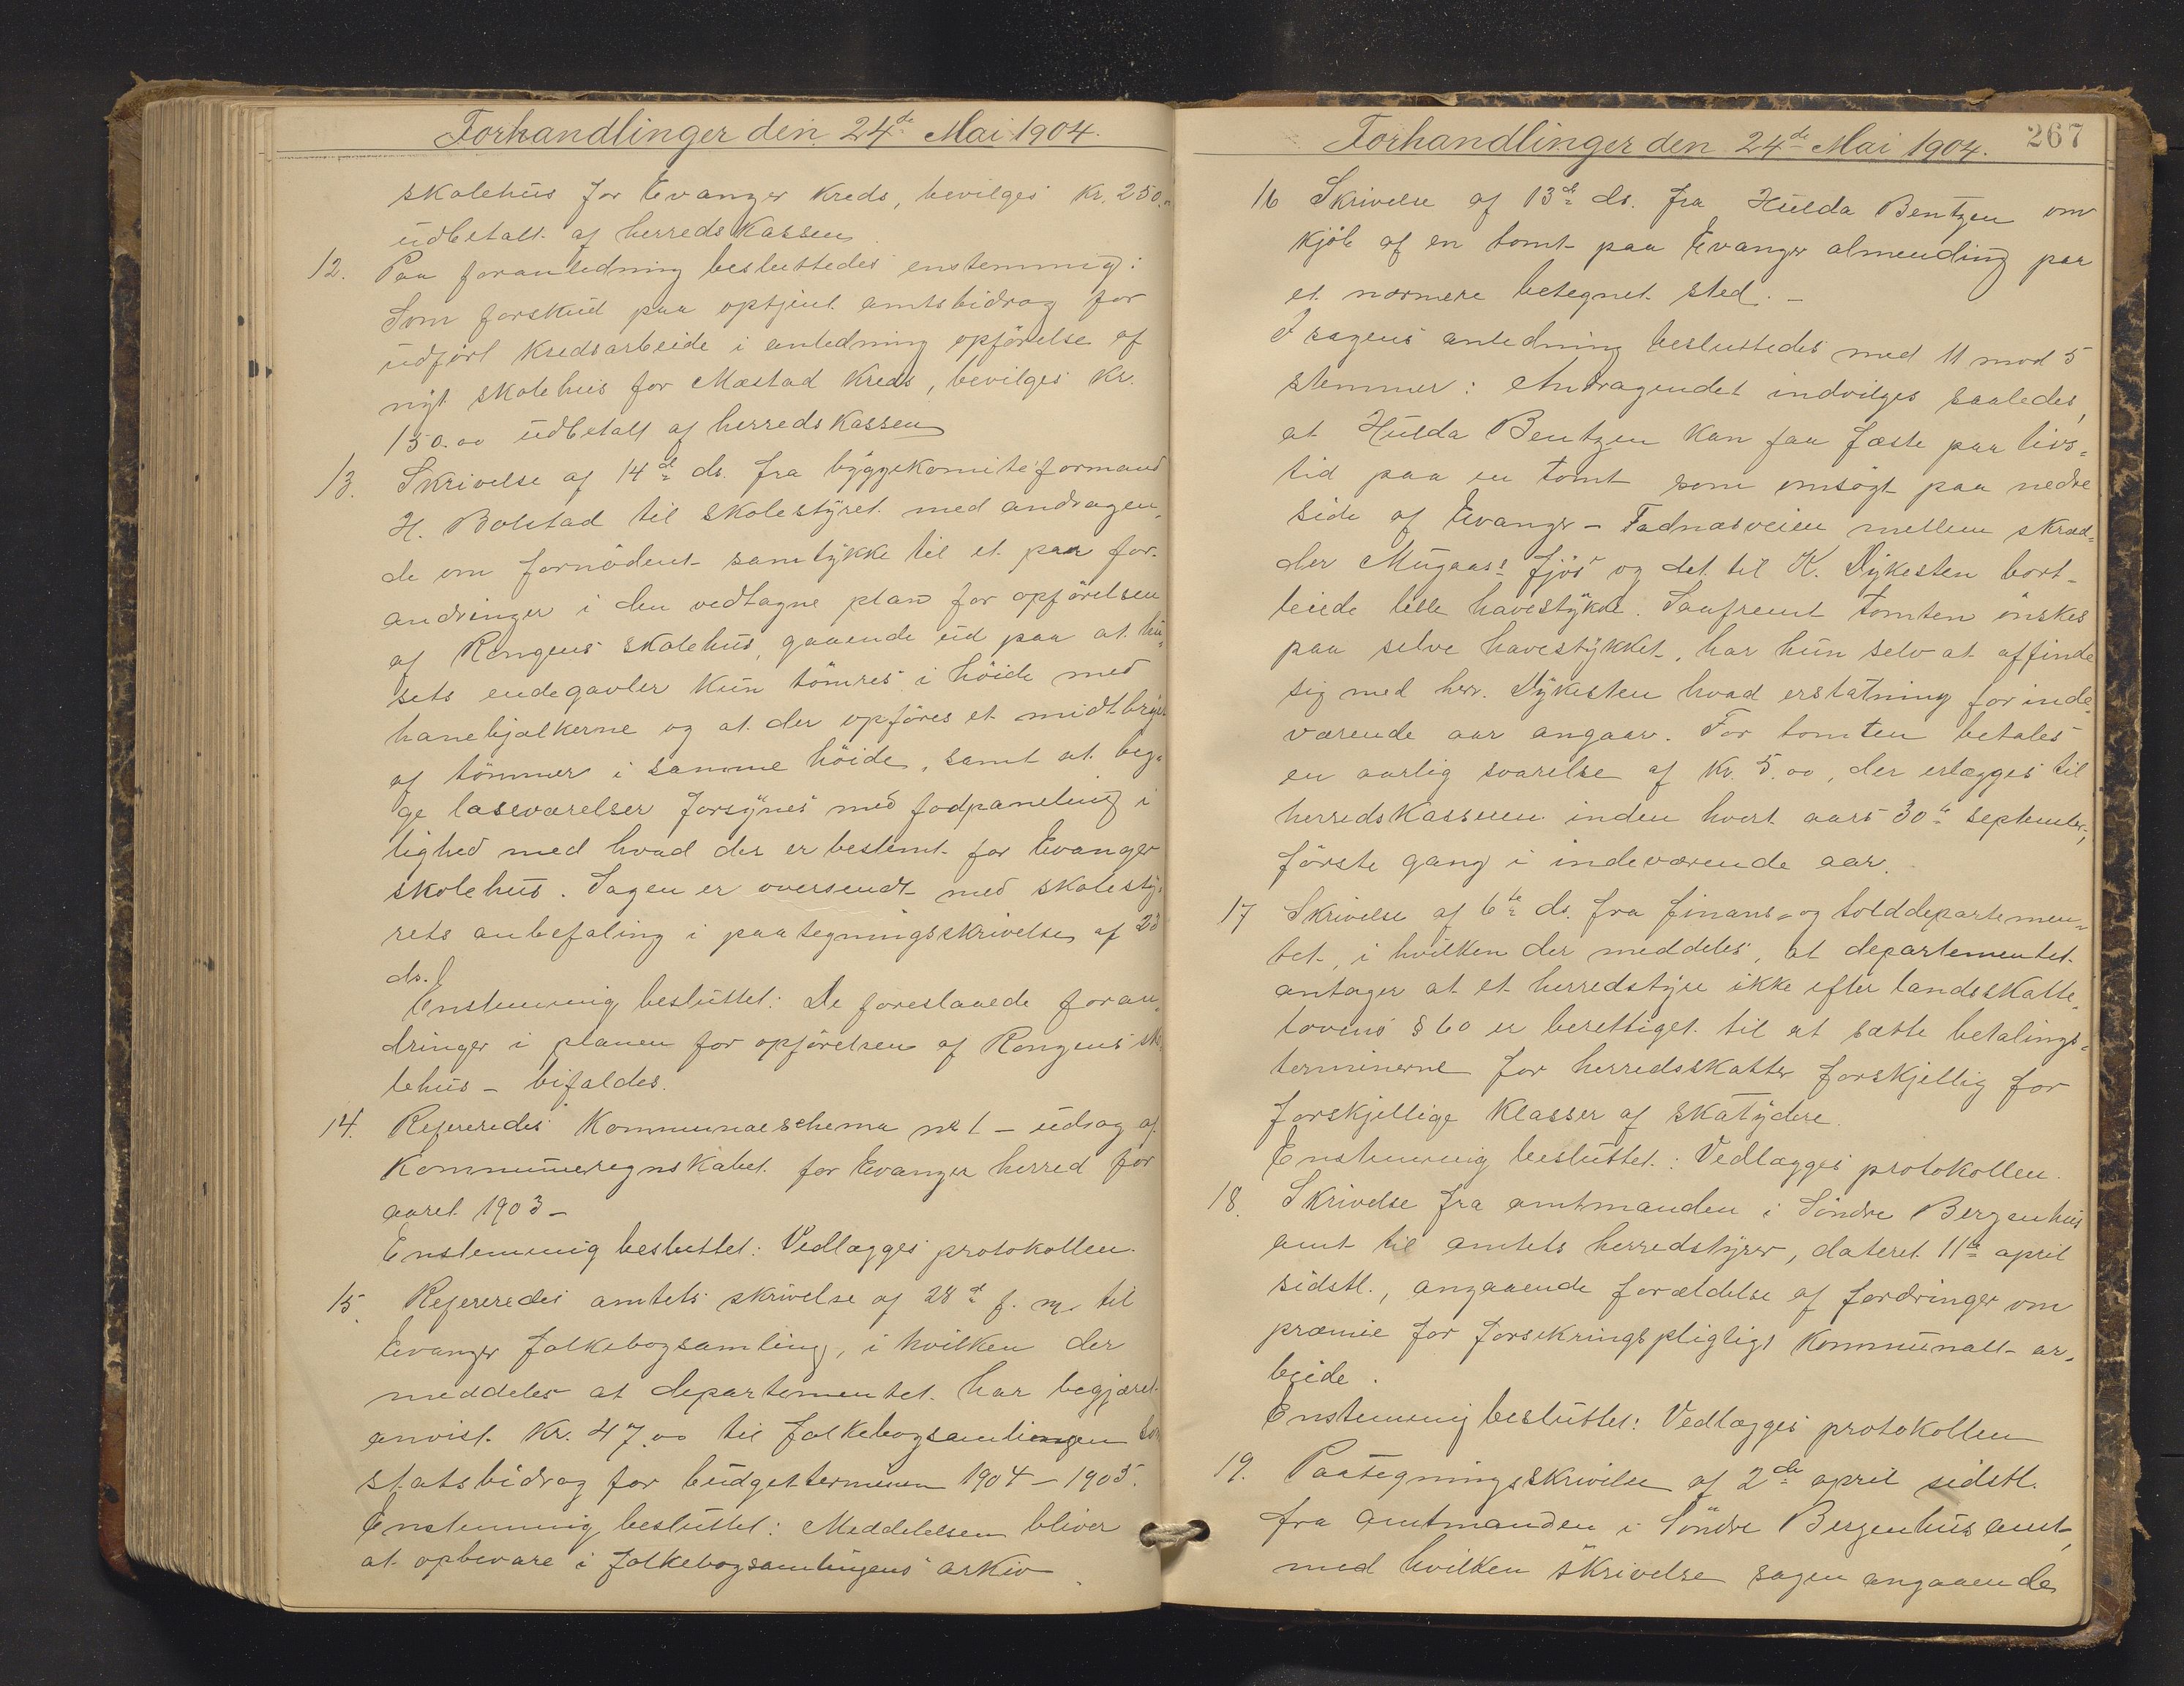 Forhandlinger den 24de Mai 1904.
skolehus for Evanger kreds, bevilges kr. 250.00
udbetalt af herredskassen.
12. Paa foranledning besluttedes enstemmig:
Som forskud paa optjent amtsbidrag for
udført kredsarbeide i anledning opførelse af
nyt skolehus for Mæstad kreds, bevilges kr.
150.00 udbetalt af herredskassen
13. Skrivelse af 14de ds. fra byggekomiteformand
H. Bolstad til skolestyret med andragen-
de om fornødent samtykke til et par for-
andringer i den vedtagne plan for opførelsen
af Rongens skolehus, gaaende ud paa at hu-
sets endegavler kun tømres i høide med
hanebjælkerne og at der opføres et midtbryst
af tømmer i samme høide, samt at beg-
ge læseværelser forsynes med fodpaneling i
lighed med hvad der er bestemt for Evanger
skolehus. Sagen er oversendt med skolesty-
rets anbefaling i paategningsskrivelse af 23
ds.
Enstemmig besluttet: De foreslaaede foran-
dringer i planen for opførelsen af Rongens sko-
lehus – bifaldes.
14. Refereredes Kommuneschema no 1 – udrag af
kommuneregnskabet for Evanger herred for
aaret 1903 –
Enstemmig besluttet: Vedlægges protokollen.
15. Refereredes amtets skrivelse af 28de f. m. til
Evanger folkebogsamling, i hvilken der
meddeles at departementet har begjæret
anvist kr. 47.00 til folkebogsamlingen som
statsbidrag for budgetterminen 1904–1905.
Enstemmig besluttet: Meddelelsen bliver
at opbevare i folkebogsamlingens arkiv.
Forhandlinger den 24de Mai 1904. 267
16 Skrivelse af 13de ds. fra Hulda Bentzen om
kjøb af en tomt paa Evanger almending paa
et nærmere betegnet sted. –
I sagens anledning besluttedes med 11 mod 5
stemmer: Andragendet indvilges saaledes,
at Hulda Bentzen kan faa fæste paa livs-
tid paa en tomt som omsøgt paa nedre
side af Evanger – Fadnæsveien mellem skræd-
der Mugaas's fjøs og det til K. Dykesten bort-
leiede lille havestykke. Saafremt tomten ønskes
paa selve havestykket, har hun selv at affinde
sig med herr. Dykesten hvad erstatning for inde-
værende aar angaar. For tomten betales
en aarlig svarelse af kr. 5.00, der erlægges til
herredskassen inden hvert aars 30te september,
første gang i indeværende aar.
17 Skrivelse af 6te ds. fra finans- og tolddepartemen-
tet, i hvilken der meddeles, at departementet
antager at et herredstyre ikke efter landsskatte-
lovens § 60 er berettiget til at sætte betalings-
terminerne for herredsskatter forskjellig for
forskjellige klasser af skatydere.
Enstemmig besluttet: Vedlægges protokollen.
18. Skrivelse fra amtmanden i Søndre Bergenhus
amt til amtets herredstyrer, dateret 11te april
sidstl., angaaende forældelse af fordringer om
præmie for forsikringspligtigt kommunalt ar-
beide.
Enstemmig besluttet: Vedlægges protokollen
19. Paategningsskrivelse af 2den april sidstl.
fra amtmanden i Søndre Bergenhus amt,
med hvilken skrivelse sagen angaaende